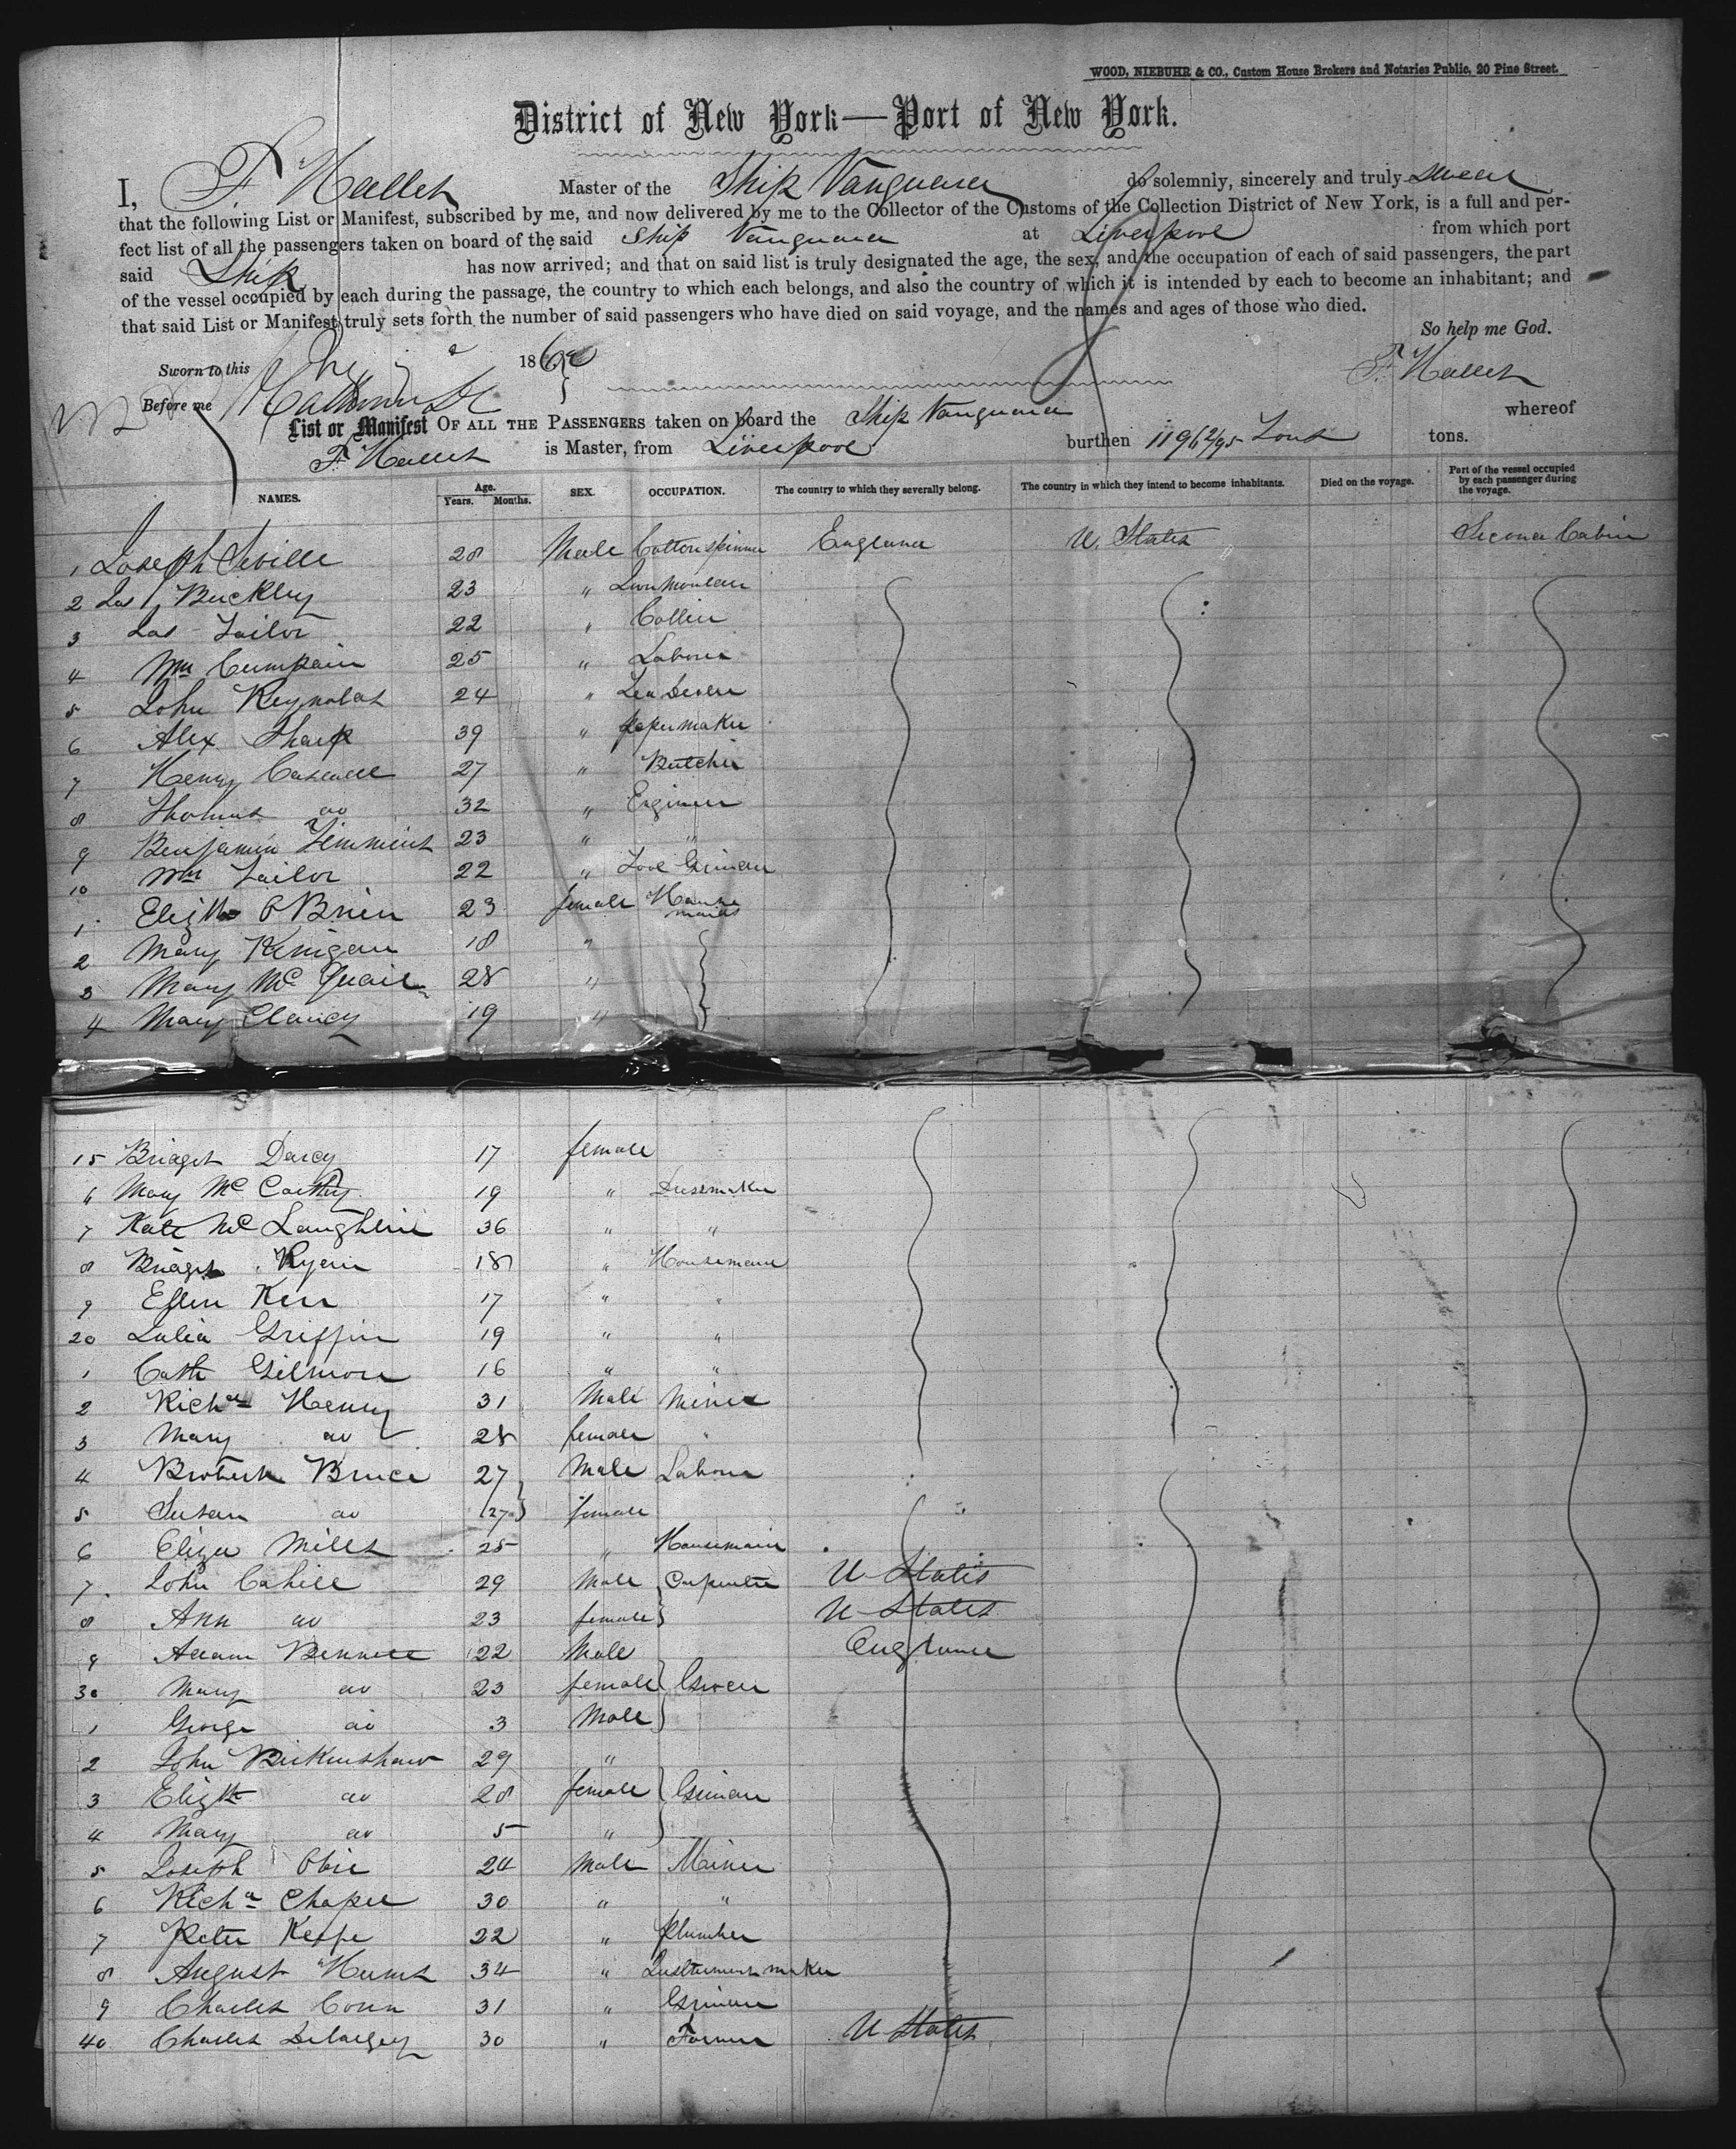 WOOD, NIEBUHR & CO., Custom House Brokers and Notaries Public, 20 Pine Street.
District of New York—Port of New York.
I, F. Hallet Master of the Ship Vanguard do solemnly, sincerely and truly swear
that the following List or Manifest, subscribed by me, and now delivered by me to the Collector of the Customs of the Collection District of New York, is a full and per-
fect list of all the passengers taken on board of the said Ship Vanguard at Liverpool from which port
said Ship has now arrived; and that on said list is truly designated the age, the sex, and the occupation of each of said passengers, the part
of the vessel occupied by each during the passage, the country to which each belongs, and also the country of which it is intended by each to become an inhabitant; and
that said List or Manifest truly sets forth the number of said passengers who have died on said voyage, and the names and ages of those who died.
So help me God.
Sworn to this 186
F. Hallet
Before me
List or Manifest OF ALL THE PASSENGERS taken on board the Ship Vanguard whereof
F. Hallet is Master, from Liverpool burthen 1196 2/95 Tons tons.
NAMES. Age. Years. Months. SEX. OCCUPATION. The country to which they severally belong. The country in which they intend to become inhabitants. Died on the voyage. Part of the vessel occupied by each passenger during the voyage.
1 Joseph Seville 28 Male Cottonspinner England U. States Second Cabin
2 Jas Buckley 23 " Iron
3 Jas Tailor 22 " Collier
4 Wm 25 " Labourer
5 John Reynolds 24 "
6 Alex Sharp 39 " papermaker
7 Henry Caswell 27 " Butcher
8 Thomas do 32 " Enginer
9 Benjamin Timmins 23 " "
10 Wm Tailor 22 " Tool Grinder
1 Elizth O Brien 23 female House maids
2 Mary Kinigan 18 "
3 Mary Mc Quail 28 "
4 Mary Clancy 19 "
15 Bridget Darcy 17 female
6 Mary Mc Carthy 19 " Dressmaker
7 Kate Mc Laughlin 36 " "
8 Bridget Ryan 18 " Housemaid
9 Ellen Kerr 17 " "
20 Julia Griffin 19 " "
1 Cath Gilmore 16 " "
2 Richd Henry 31 Male Miner
3 Mary do 28 female "
4 Bruce 27 Male Labourer
5 Susan do 27 female
6 Eliza Mills 25 " Housemaid
7 John Cahill 29 Male Carpenter U States
8 Ann do 23 female U States
9 Adam Bennett 22 Male England
30 Mary do 23 female Grocer
1 George do 3 Male
2 John Birkinshaw 29 "
3 Elizth do 28 female Grinder
4 Mary do 5 "
5 Joseph 24 Male Miner
6 Richd Chapel 30 " "
7 Peter Keffe 22 " Plumber
8 August 34 " Instrument maker
9 Charles Conn 31 " Grinder
40 Charles Delargey 30 " Farmer U States